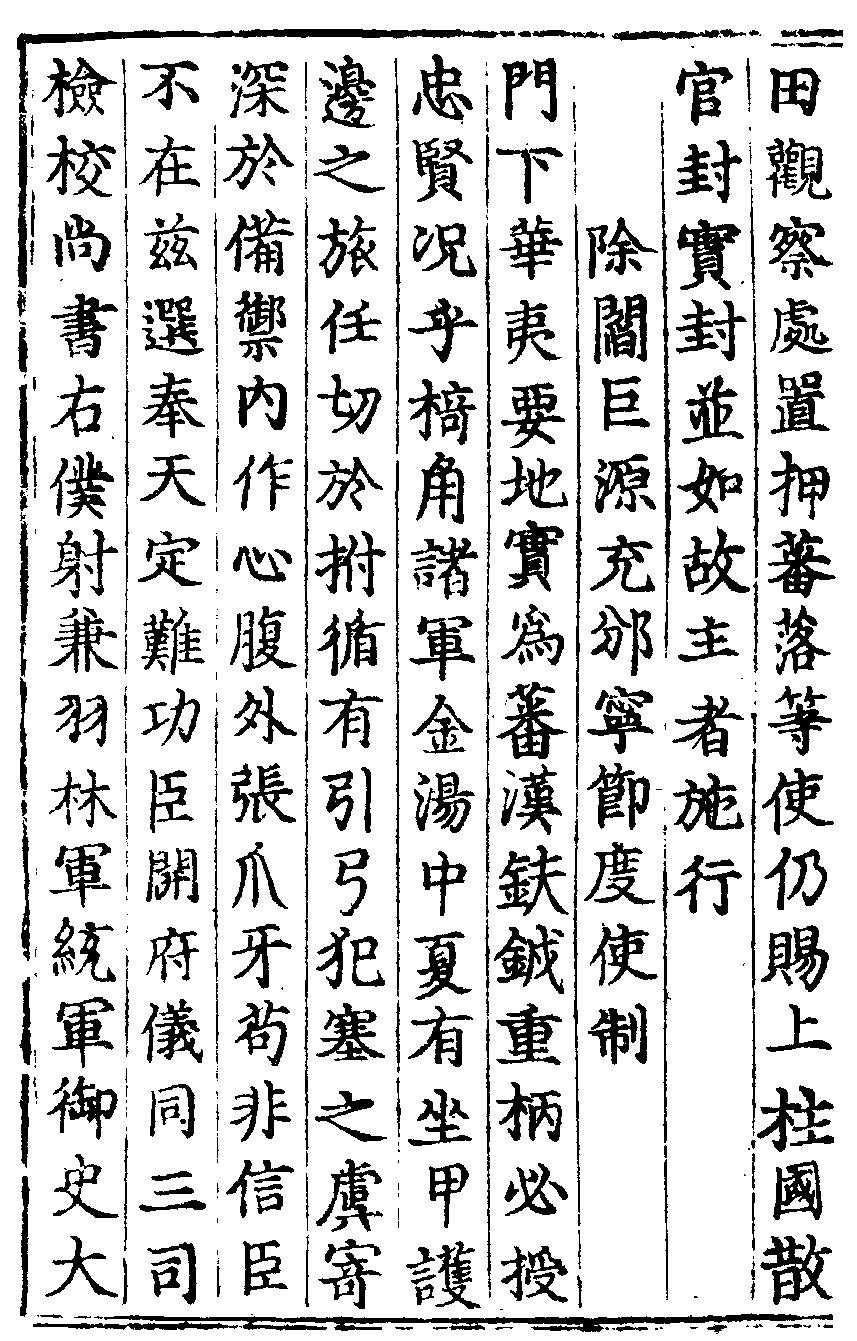 田觀察處置押蕃落等使仍賜上柱國散
官封實封並如故主者施行
除閻巨源充邠寧節度使制
門下華夷要地實爲蕃漢鈇鉞重柄必授
忠賢况乎掎角諸軍金湯中夏有坐甲護
邊之旅任切於拊循有引弓犯塞之虞寄
深於備禦内作心腹外張爪牙苟非信臣
不在兹選奉天定難功臣開府儀同三司
檢校尚書右僕射兼羽林軍統軍御史大